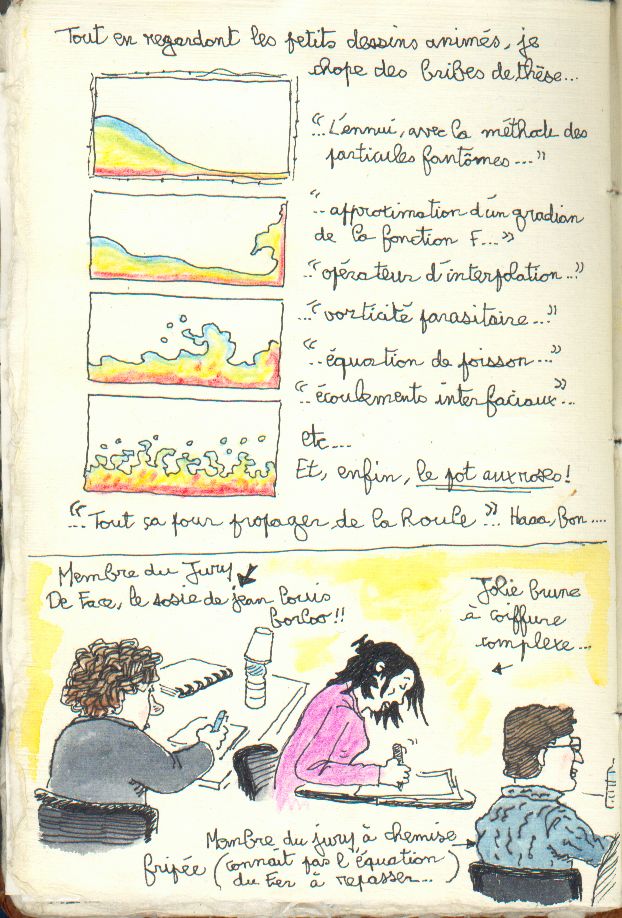 Tout en regardant les petits dessins animés, je
chope des bribes de thèse...
"...L'ennui, avec la méthode des
particules fantômes..."
"...approximation d'un gradian
de la fonction F..."
"opérateur d'interpolation..."
..."vorticité parasitaire..."
"...équation de poisson..."
"écoulements interfaciaux"...
etc....
Et, enfin, le pot aux roses!
"...Tout ça pour propager de la houle"... Haaa, bon....
Membre du Jury
De Face, le sosie de jean louis
borloo!!
Jolie brune
à coiffure
complexe...
Membre du jury à chemise
fripée (connait pas l'équation
du Fer à repasser...)